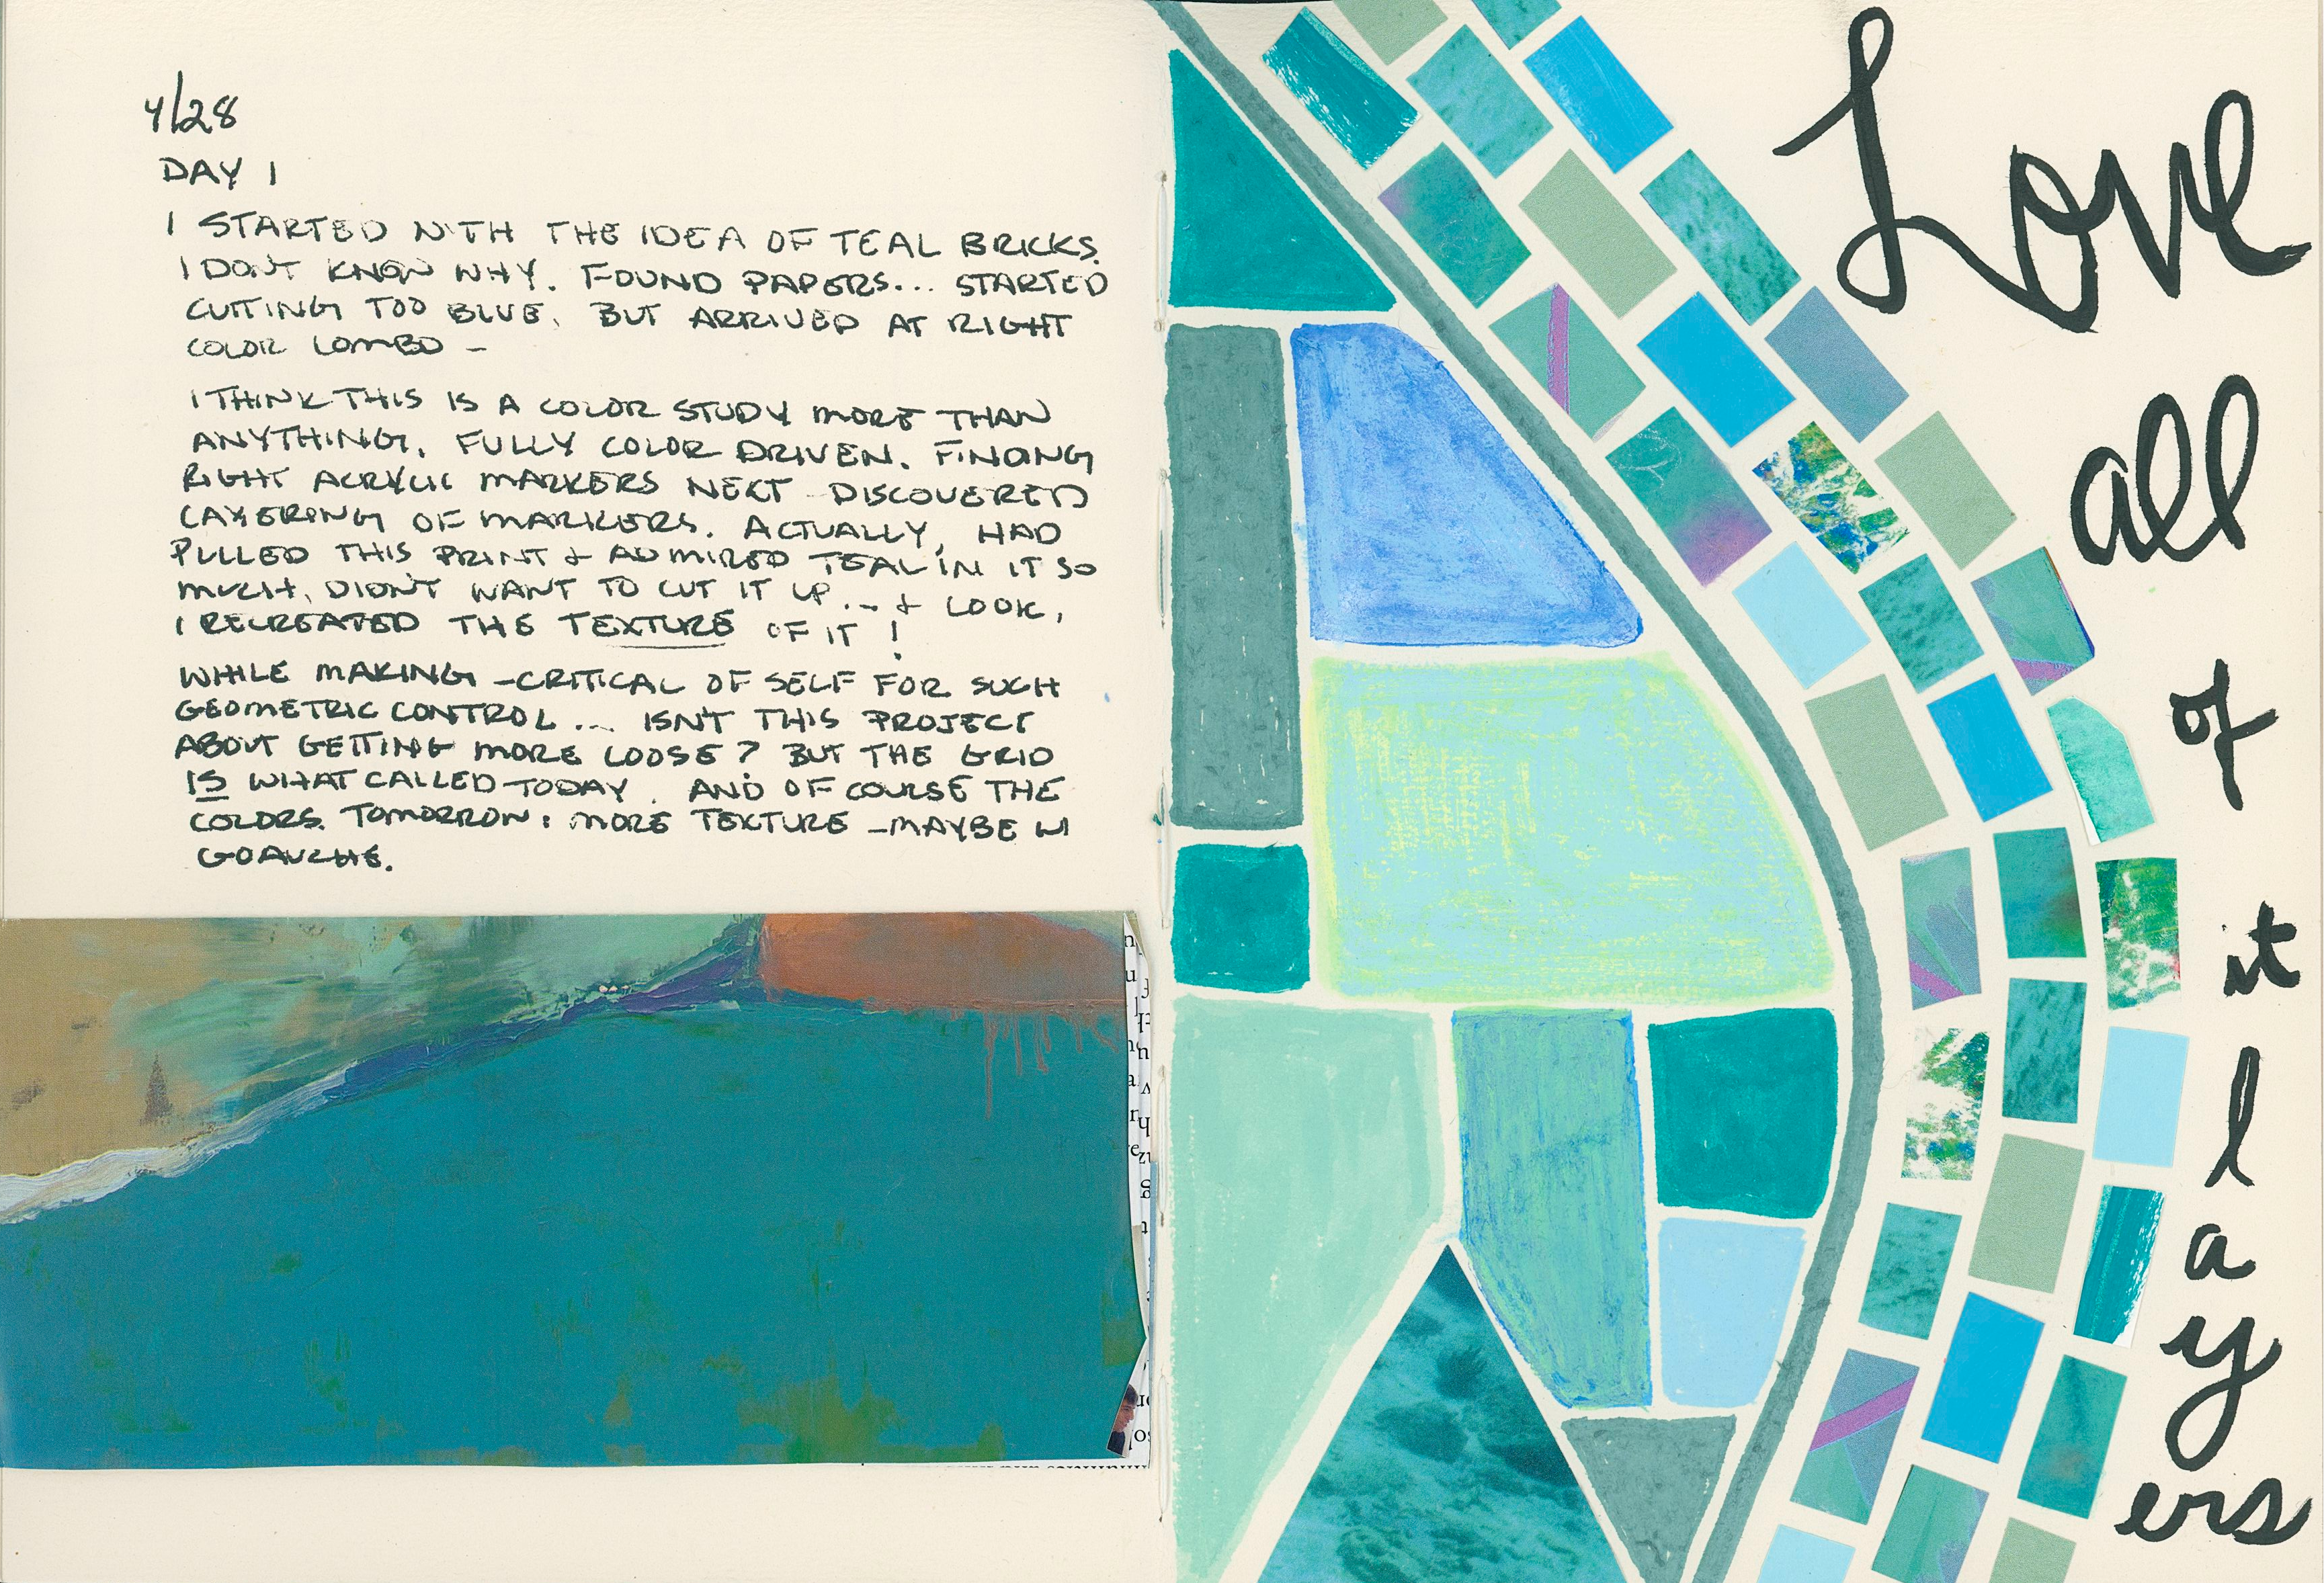 4/28
DAY 1
I STARTED WITH THE IDEA OF TEAL BRICKS.
I DON'T KNOW WHY. FOUND PAPERS... STARTED
CUTTING TOO BLUE. BUT ARRIVED AT RIGHT
COLOR COMBO -
I THINK THIS IS A COLOR STUDY MORE THAN
ANYTHING. FULLY COLOR DRIVEN. FINDING
RIGHT ACRYLIC MARKERS NEXT - DISCOVERED
LAYERING OF MARKERS. ACTUALLY, HAD
PULLED THIS PRINT & ADMIRED TEAL IN IT SO
MUCH, DIDN'T WANT TO CUT IT UP... & LOOK,
I RECREATED THE TEXTURE OF IT!
WHILE MAKING - CRITICAL OF SELF FOR SUCH
GEOMETRIC CONTROL... ISN'T THIS PROJECT
ABOUT GETTING MORE LOOSE? BUT THE GRID
IS WHAT CALLED TODAY. AND OF COURSE THE
COLORS. TOMORROW: MORE TEXTURE - MAYBE W/
GOAUCHE.
Love
all
of
it
l
a
y
ers